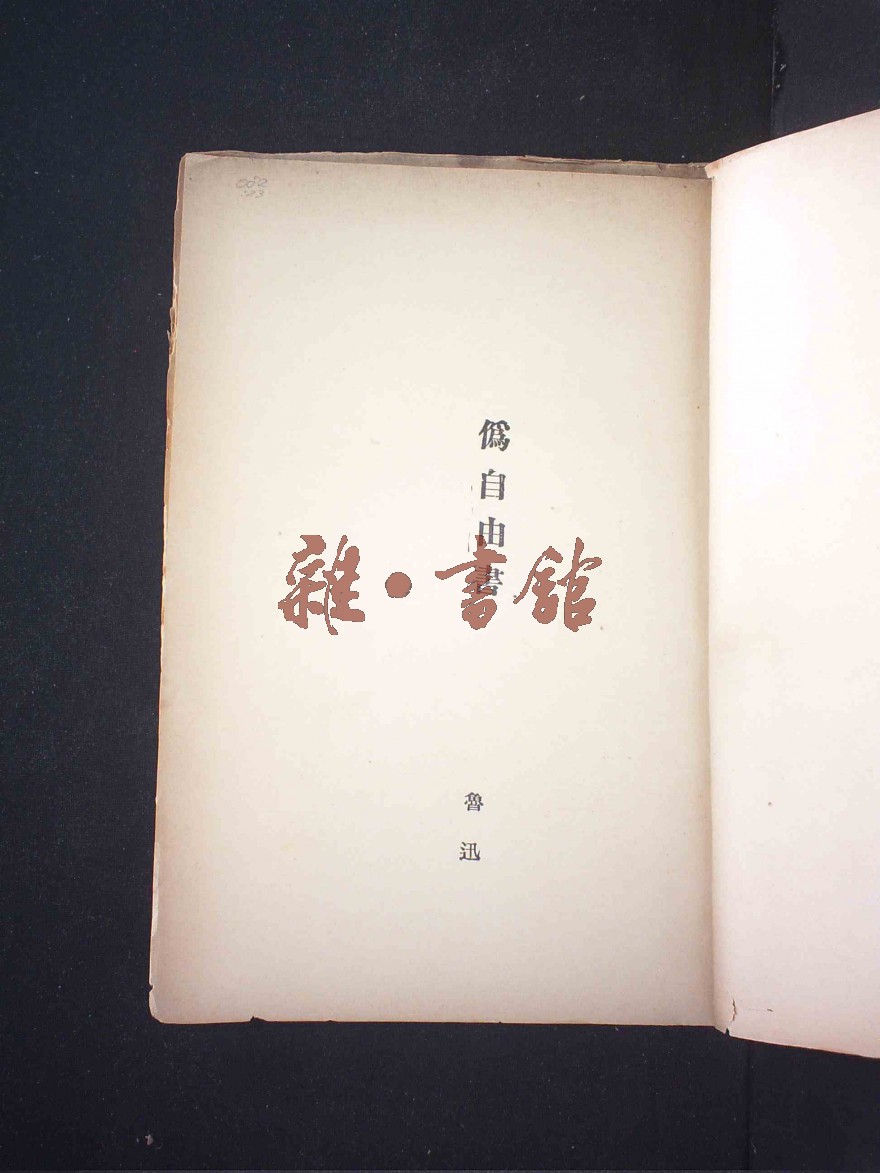 082
偽自由書
雜·書館
魯迅